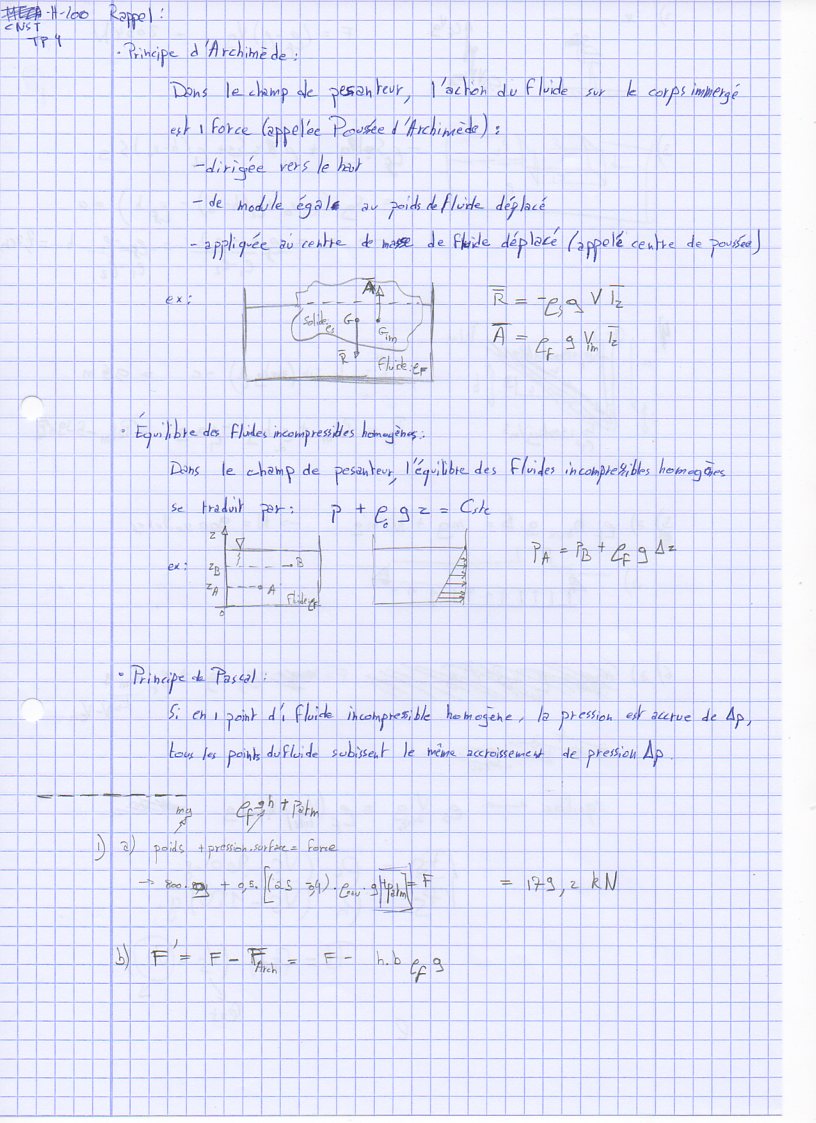 -H-100 Rappel :
CNST
TP 4
• Principe d'Archimède :
Dans le champ de pesanteur, l'action du fluide sur le corps immergé
est 1 force (appelée Poussée d'Archimède) :
- dirigée vers le haut
- de module égale au poids de fluide déplacé
- appliquée au centre de masse de fluide déplacé (appelé centre de poussée)
ex : Solide ρs G A Gim R Fluide : ρF
R = -ρs g V 1z
A = ρF g Vim 1z
• Équilibre des fluides incompressibles homogènes :
Dans le champ de pesanteur, l'équilibre des fluides incompressibles homogènes
se traduit par : p + ρ0 g z = Cste
ex : z zB B zA A 0 Fluide ρF
pA = pB + ρF g Δz
• Principe de Pascal :
Si en 1 point d'1 fluide incompressible homogène, la pression est accrue de Δp,
tous les points du fluide subissent le même accroissement de pression Δp.
mg ρF gh + Patm
1) a) poids + pression.surface = force
→ 800. g + 0,5. [(25 3,4) . ρeau . g + Patm] = F = 179,2 kN
b) F' = F - FArch = F - h.b ρF g